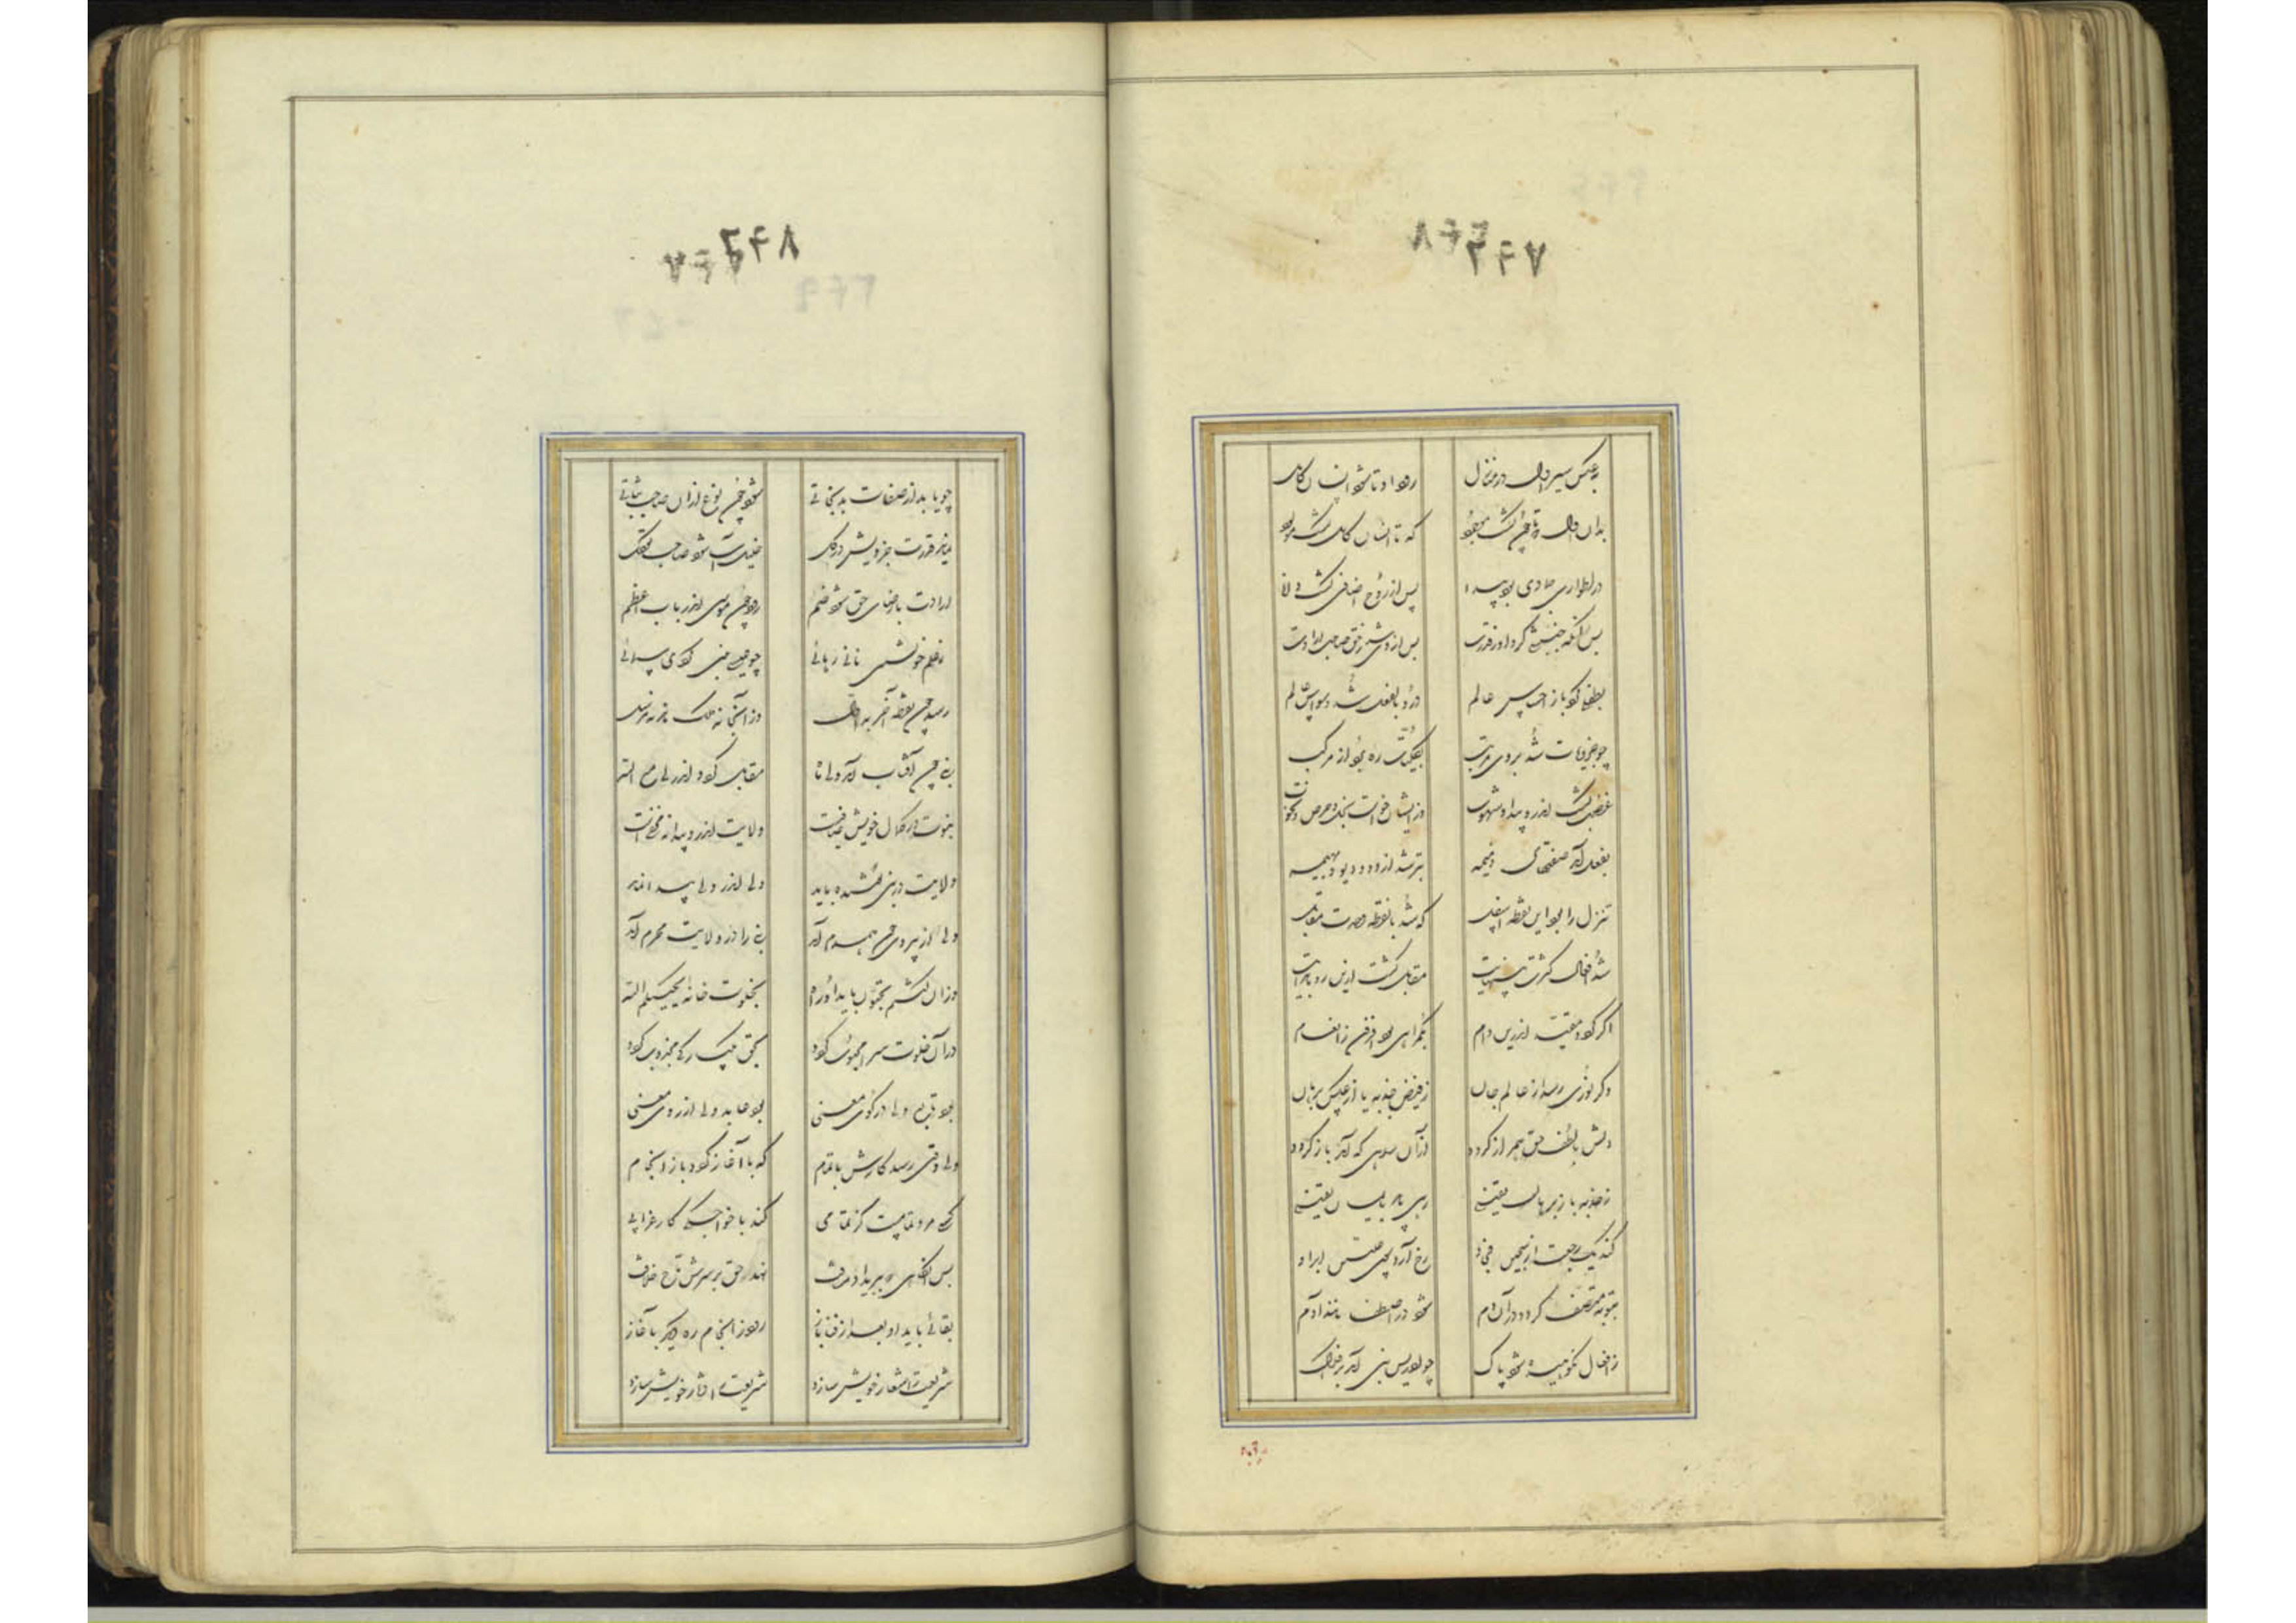 بعکس سیر اول در منازل رود او تا شود انسان کامل
بدان اول که تا چون گشت موجود که تا انسان کامل گشت مولود
در اطوار جمادی بود پیدا پس از روح اضافی گشت دانا
پس آنگه جنبشی کرد او ز قدرت پس از وی شد ز حق صاحب ارادت
بطفلی کرد باز احساس عالم درو بالفعل شد وسواس عالم
چو جزویات شد بر وی مرتب بکلیات ره برد از مرکب
غضب گشت اندرو پیدا و شهوت وز ایشان خواست بخل و حرص و نخوت
بفعل آمد صفتهای ذمیمه بتر شد از دد و دیو و بهیمه
تنزل را بود این نقطه اسفل که شد با نقطه وحدت مقابل
شد افعال کثرت بی نهایت مقابل گشت ازین رو با بدایت
اگر گردد مقید اندرین دام بگمراهی بود ز انعام
وگر نوری رسد از عالم جان ز فیض جذبه یا از عکس برهان
دلش بالطف حق همراز گردد از آن راهی که آمد باز گردد
ز جذبه یا ز برهان یقینی رهی یابد بایمان یقینی
کند یک رجعت از سجین فجار رخ آرد علیین ابرار
بتوبه متصف گردد در آن دم شود در اصطفی آدم
ز افعال نکوهیده شود پاک چو ادریس نبی آید بر افلاک
چو یابد از صفات بد نجاتی شود چون نوح از آن صاحب ثباتی
نماند قدرت جزویش در کل خلیل آسا شود صاحب توکل
ارادت با رضای حق شود ضم رود چون موسی اندر باب اعظم
ز علم خویشتن یابد رهائی چو عیسی نبی گردد سمائی
رسد چون نقطه آخر باول در آنجا نه ملک گنجد نه مرسل
نبی چون آفتاب آمد ولی ماه مقابل گردد اندر لی مع الله
نبوت در کمال خویش صافیست ولایت اندرو پیدا نه مخفیست
ولایت در ولی پوشیده باید ولی اندر نبی پیدا نماید
ولی از پیروی چون همدم آمد نبی را در ولایت محرم آمد
ز ان کنتم تحبون یابد او راه بخلوت خانه یحببکم الله
در آن خلوت سرا محبوب گردد بحق یکبارگی مجذوب گردد
بود تابع ولی از روی معنی بود عابد ولی در کوی معنی
ولی وقتی رسد کارش باتمام که با آغاز گردد باز از انجام
کسی مرد تمامست کز تمامی کند با خواجگی کار غلامی
پس آنگاهی که ببرید او مسافت نهد حق بر سرش تاج خلافت
بقائی یابد او بعد از فنا باز رود ز انجام ره دیگر بآغاز
شریعت را شعار خویش سازد طریقت را دثار خویش سازد